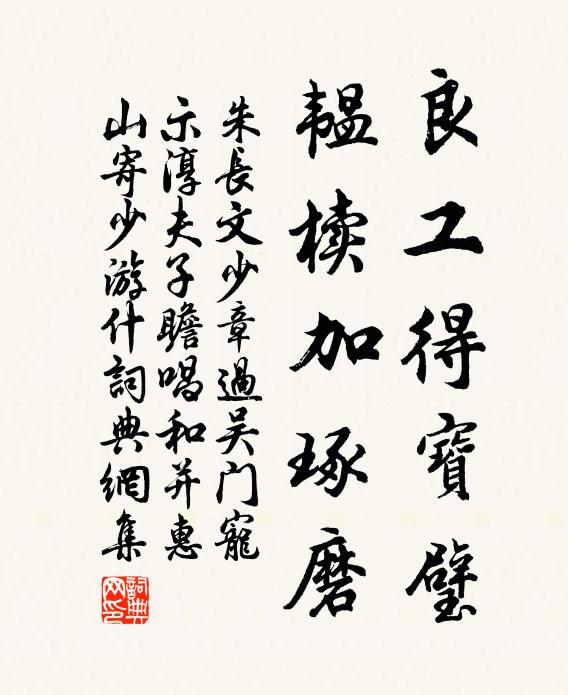 良工得寶璧
韞櫝加琢磨
朱長文少章過吳门寵
示淳夫子瞻唱和并惠
山寄少游什詞典網集
詞典
网印